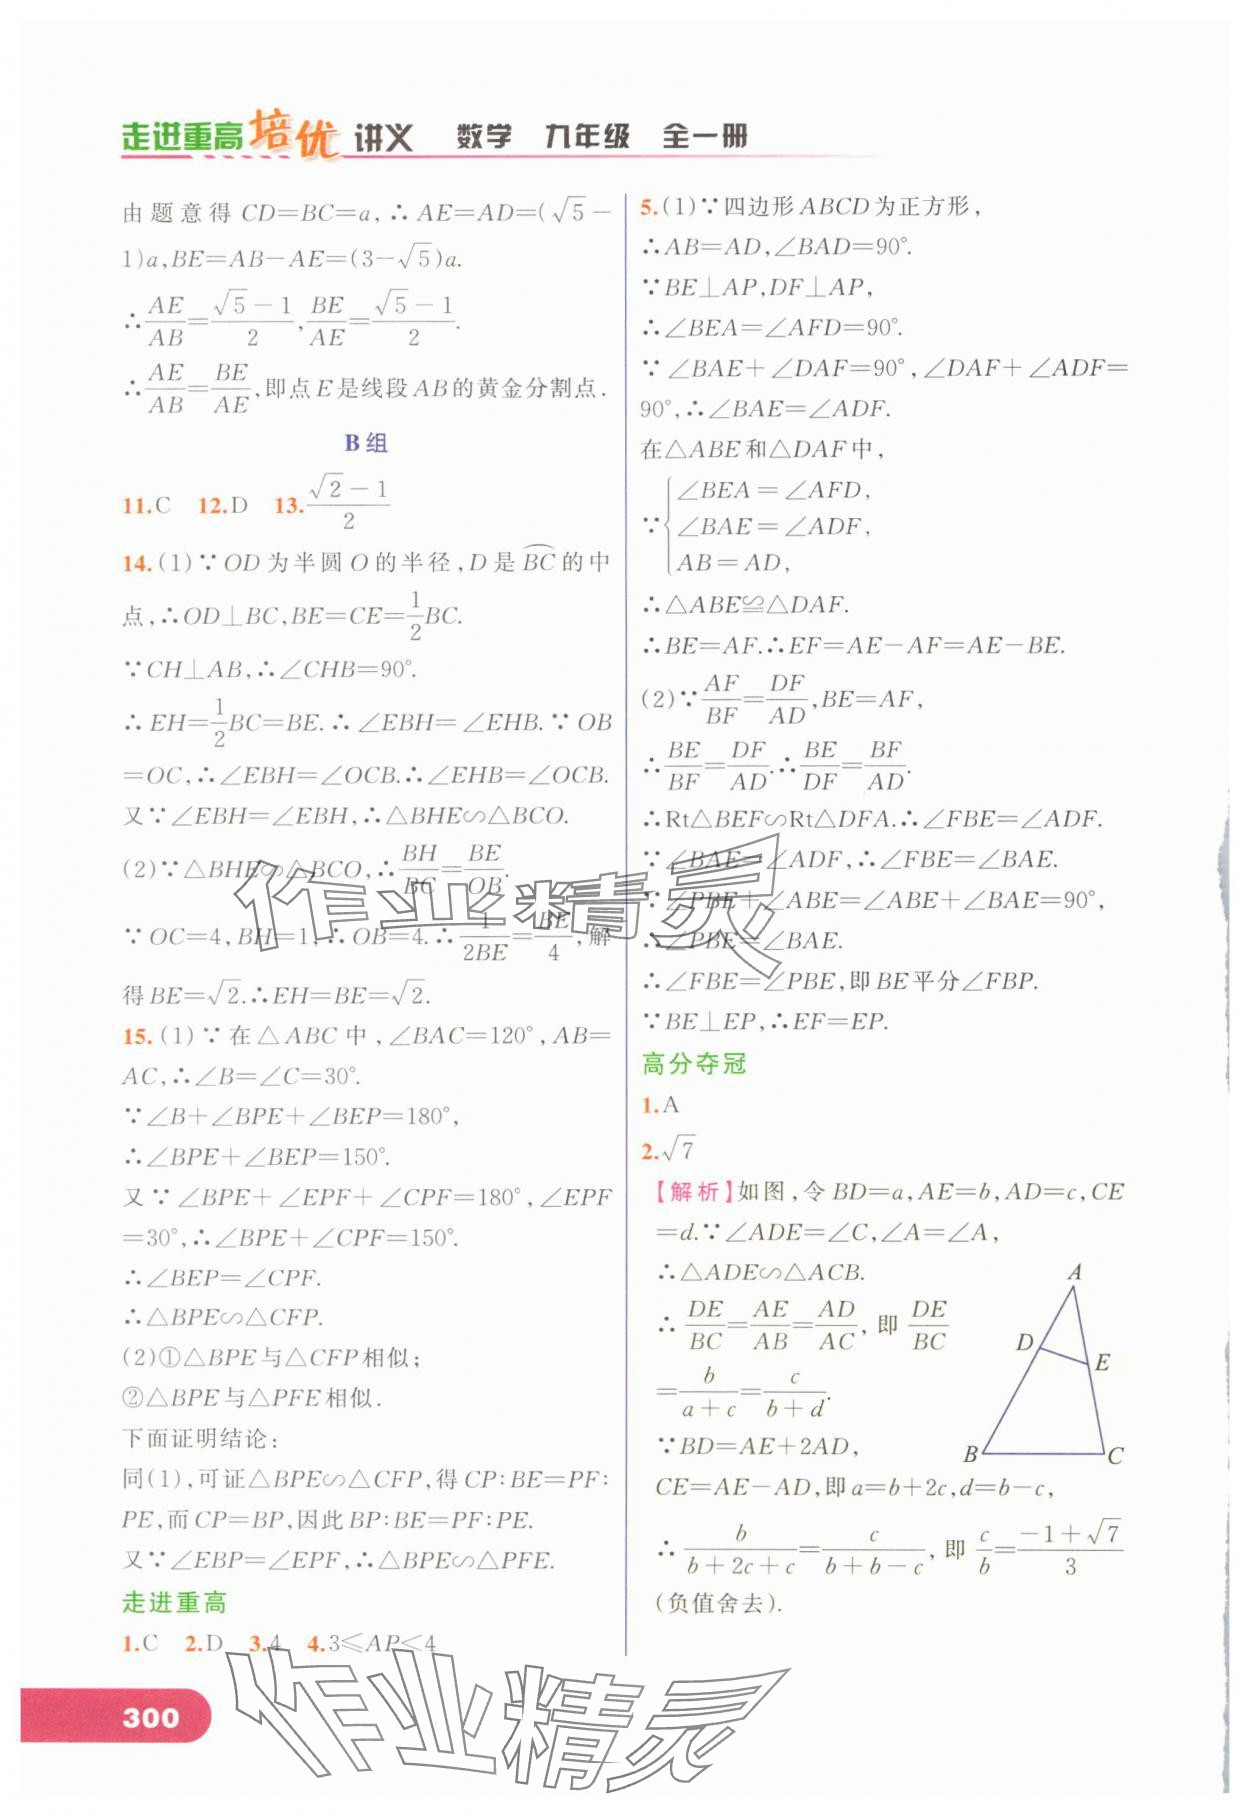 走进重高培优讲义 数学 九年级 全一册
由题意得 CD=BC=a,∴AE=AD=(√5-
1)a,BE=AB-AE=(3-√5)a.
∴AE/AB=(√5-1)/2,BE/AE=(√5-1)/2.
∴AE/AB=BE/AE,即点E是线段AB的黄金分割点.
B组
11.C 12.D 13.(√2-1)/2
14.(1)∵OD为半圆O的半径,D是⌒BC的中
点,∴OD⊥BC,BE=CE=1/2BC.
∵CH⊥AB,∴∠CHB=90°.
∴EH=1/2BC=BE.∴∠EBH=∠EHB.∵OB
=OC,∴∠EBH=∠OCB.∴∠EHB=∠OCB.
又∵∠EBH=∠EBH,∴△BHE∽△BCO.
(2)∵△BHE∽△BCO,∴BH/BC=BE/OB.
∵OC=4,BH=1,∴OB=4.∴1/2BE=BE/4,解
得BE=√2.∴EH=BE=√2.
15.(1)∵在△ABC中,∠BAC=120°,AB=
AC,∴∠B=∠C=30°.
∵∠B+∠BPE+∠BEP=180°,
∴∠BPE+∠BEP=150°.
又∵∠BPE+∠EPF+∠CPF=180°,∠EPF
=30°,∴∠BPE+∠CPF=150°.
∴∠BEP=∠CPF.
∴△BPE∽△CFP.
(2)①△BPE与△CFP相似;
②△BPE与△PFE相似.
下面证明结论:
同(1),可证△BPE∽△CFP,得CP:BE=PF:
PE,而CP=BP,因此BP:BE=PF:PE.
又∵∠EBP=∠EPF,∴△BPE∽△PFE.
走进重高
1.C 2.D 3.4 4.3≤AP<4
300
5.(1)∵四边形ABCD为正方形,
∴AB=AD,∠BAD=90°.
∵BE⊥AP,DF⊥AP,
∴∠BEA=∠AFD=90°.
∵∠BAE+∠DAF=90°,∠DAF+∠ADF=
90°,∴∠BAE=∠ADF.
在△ABE和△DAF中,
∠BEA=∠AFD,
∵{∠BAE=∠ADF,
AB=AD,
∴△ABE≌△DAF.
∴BE=AF.∴EF=AE-AF=AE-BE.
(2)∵AF/BF=DF/AD,BE=AF,
∴BE/BF=DF/AD.∴BE/DF=BF/AD.
∴Rt△BEF∽Rt△DFA.∴∠FBE=∠ADF.
∵∠BAE=∠ADF,∴∠FBE=∠BAE.
∵∠PBE+∠ABE=∠ABE+∠BAE=90°,
∴∠PBE=∠BAE.
∴∠FBE=∠PBE,即BE平分∠FBP.
∵BE⊥EP,∴EF=EP.
高分夺冠
1.A
2.√7
【解析】如图,令BD=a,AE=b,AD=c,CE
=d.∵∠ADE=∠C,∠A=∠A,
∴△ADE∽△ACB.
∴DE/BC=AE/AB=AD/AC,即DE/BC
=b/(a+c)=c/(b+d).
∵BD=AE+2AD,
CE=AE-AD,即a=b+2c,d=b-c,
∴b/(b+2c+c)=c/(b+b-c),即c/b=(-1+√7)/3
(负值舍去).
A
D
E
B
C
作业精灵
作业精灵